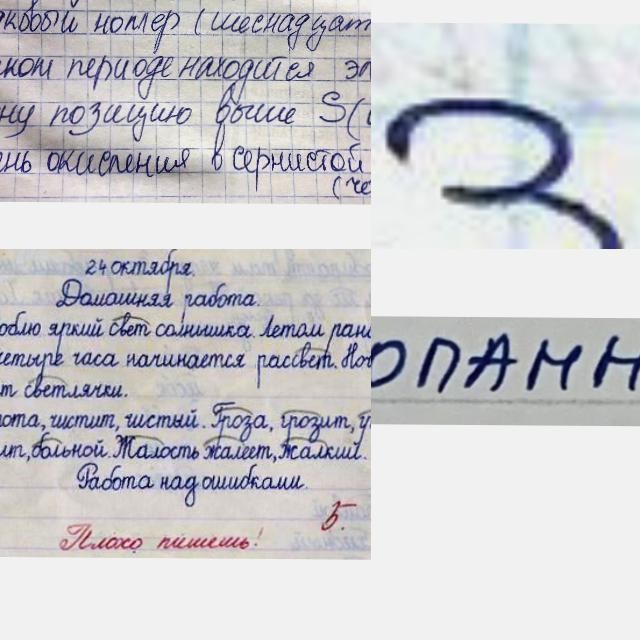 номер (шеснадцат
периоде находится эл
ну позицию выше S(
нь окисления в сернистой
(че
3
24 октября.
Домашняя работа.
юблю яркий свет солнышка. Летом ран
четыре часа начинается рассвет. Но
т светлячки.
ота, чистит, чистый. Гроза, грозит, у
ит, больной. Жалость жалеет, жалкий.
Работа над ошибками.
5.
Плохо пишешь!
ОПАНН